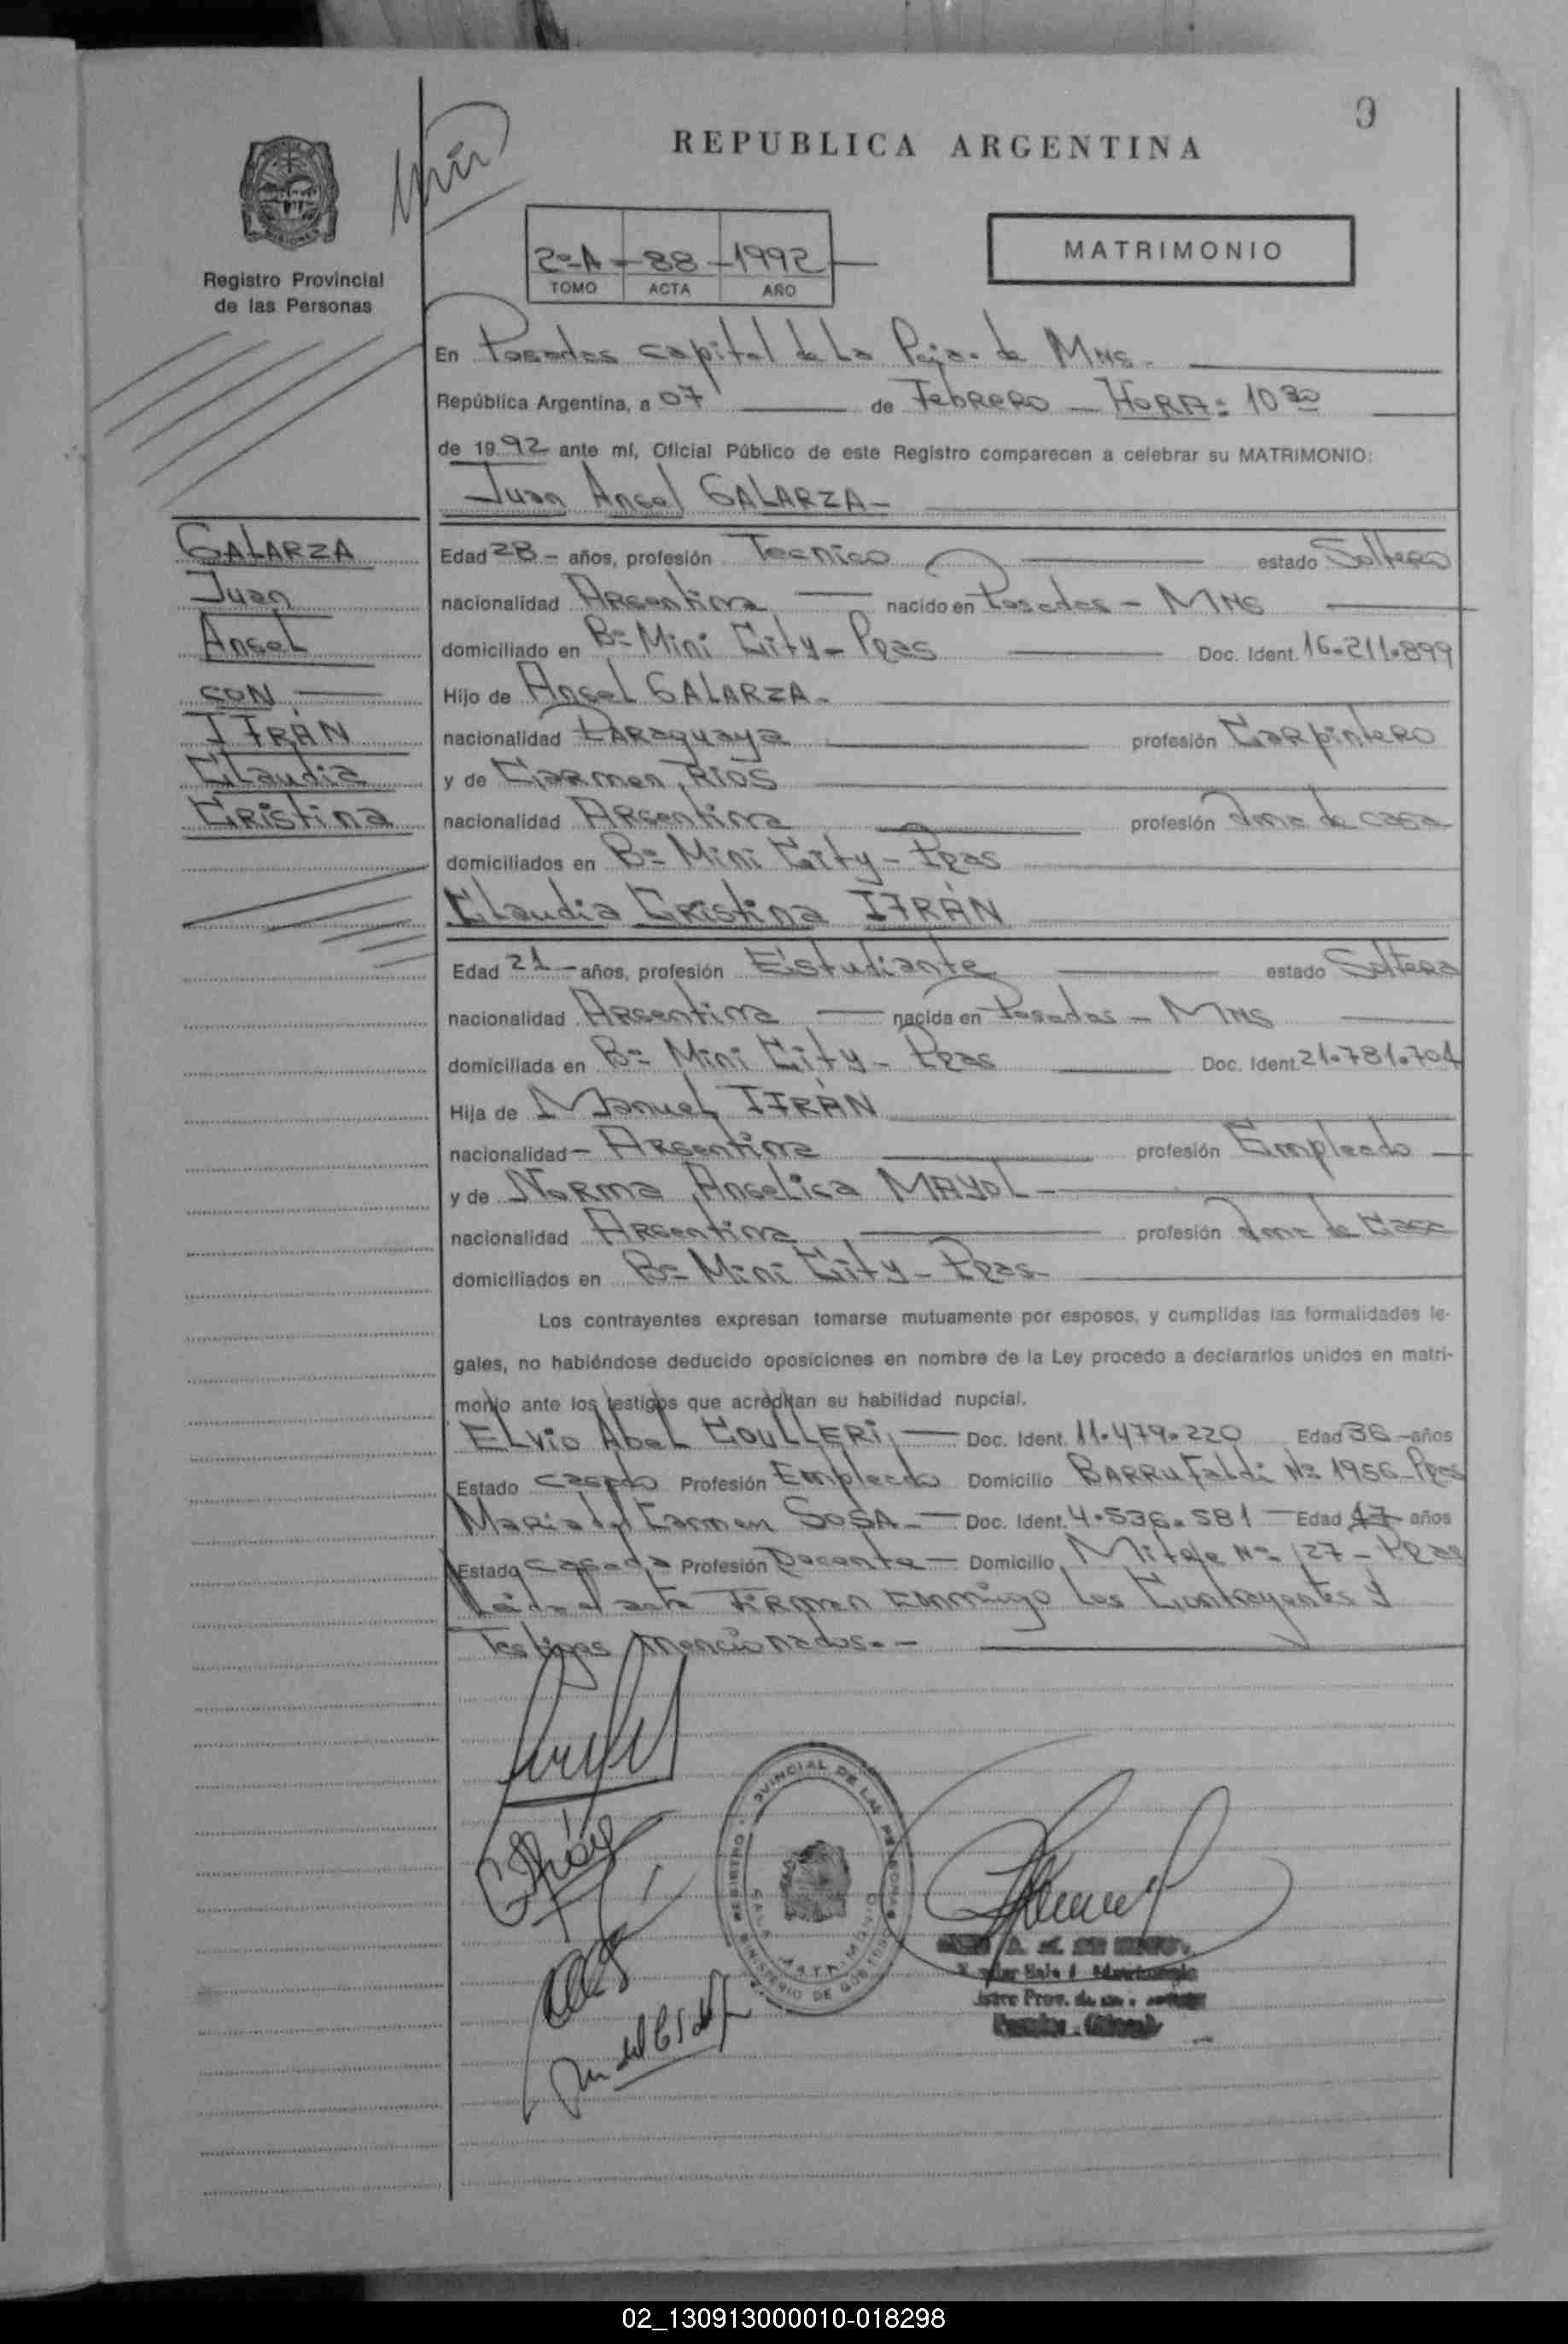 9
REPUBLICA ARGENTINA
MISIONES
Registro Provincial
de las Personas
2º-A - 88 - 1992
TOMO ACTA AÑO
MATRIMONIO
En Posadas capital de La Pcia. de MNS.
República Argentina, a 07 de FebRERO - HORA: 10 30
de 1992 ante mí, Oficial Público de este Registro comparecen a celebrar su MATRIMONIO:
Juan Angel GALARZA-
GALARZA
Juan
Angel
CON
IFRÁN
Claudia
Cristina
Edad 28- años, profesión Tecnico estado Soltero
nacionalidad Argentina nacido en Posadas - MNS
domiciliado en Bº Mini City - Pdas Doc. Ident. 16.211.899
Hijo de Angel GALARZA.
nacionalidad Paraguaya profesión Carpintero
y de Carmen RIOS
nacionalidad Argentina profesión Ama de casa
domiciliados en Bº Mini City - Pdas
Claudia Cristina IFRÁN
Edad 21- años, profesión Estudiante estado Soltera
nacionalidad Argentina nacida en Posadas - MNS
domiciliada en Bº Mini City - Pdas Doc. Ident. 21.781.704
Hija de Manuel IFRÁN
nacionalidad - Argentina profesión Empleado
y de Norma Angelica MAYOL -
nacionalidad Argentina profesión Ama de Casa
domiciliados en Bº Mini City - Pdas-
Los contrayentes expresan tomarse mutuamente por esposos, y cumplidas las formalidades le-
gales, no habiéndose deducido oposiciones en nombre de la Ley procedo a declararlos unidos en matri-
monio ante los testigos que acreditan su habilidad nupcial.
ELVio Abel COULLERi Doc. Ident. 11.479.220 Edad 36 -años
Estado casado Profesión Empleado Domicilio BARRUFaldi Nº 1956 - Pdas
Maria del Carmen SOSA - Doc. Ident. 4.536.581 - Edad 47 años
Estado casada Profesión Docente - Domicilio Nº 127 - Pdas
Leída el acta Firman Conmigo Los Contrayentes y
Testigos Mencionados. -
REGISTRO PROVINCIAL DE LAS PERSONAS
SALA MATRIMONIO
MINISTERIO DE GOBIERNO
02_130913000010-018298